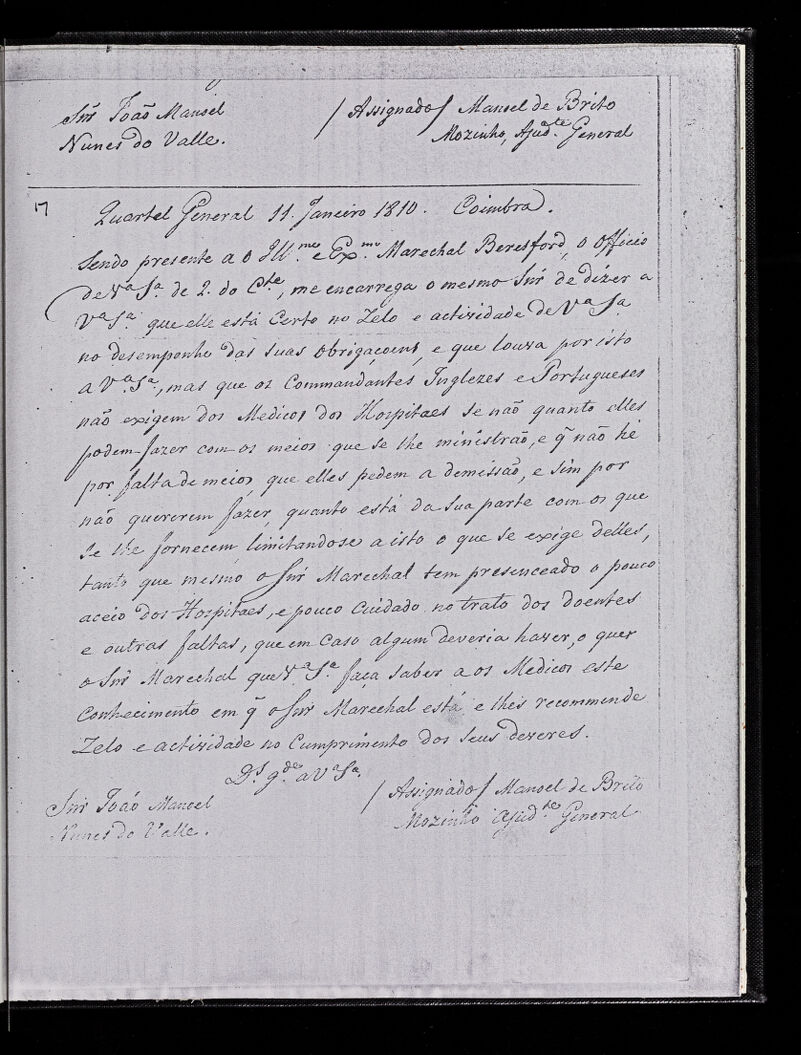 Snr̃ João Manoel
Nunes do Valle.
/ Assignado / Manoel de Brito
Mozinho, Ajud.te General
17
Quartel General 11. Janeiro 1810. Coimbra.
Sendo presente a o Ill.mo e Ex.mo Marechal Beresford, o Officio
de V.ª S.ª de 2. do C.te, me encarrega o mesmo Snr̃ de dizer a
V.ª S.ª que elle está Certo no Zelo e actividade de V.ª S.ª
no desempenho das suas obrigaçoens, e que louva por isto
a V.ª S.ª, mas que os Commandantes Inglezes e Portugueses
não exigem dos Medicos dos Hospitaes se não quanto elles
podem fazer com os meios que se lhe ministrão, e q̃ não hé
por falta de meios, que elles pedem a demissão, e sim por
não quererem fazer, quanto está da sua parte com os que
se lhe fornecem, limitandose a isto o que se exige delles,
tanto que mesmo o Snr̃ Marechal tem presenceado o pouco
aceio dos Hospitaes, e pouco cuidado no trato dos doentes
e outras faltas, que em caso algum deveria haver, o quer
o Snr̃ Marechal que V.ª S.ª faça saber a os Medicos este
Conhecimento em q̃ o Snr̃ Marechal está e lhes recommende
Zelo e actividade no Cumprimento dos seus deveres.
D.s g.de a V.ª S.ª
Snr̃ João Manoel
Nunes do Valle.
/ Assignado / Manoel de Brito
Mozinho Ajud.te General